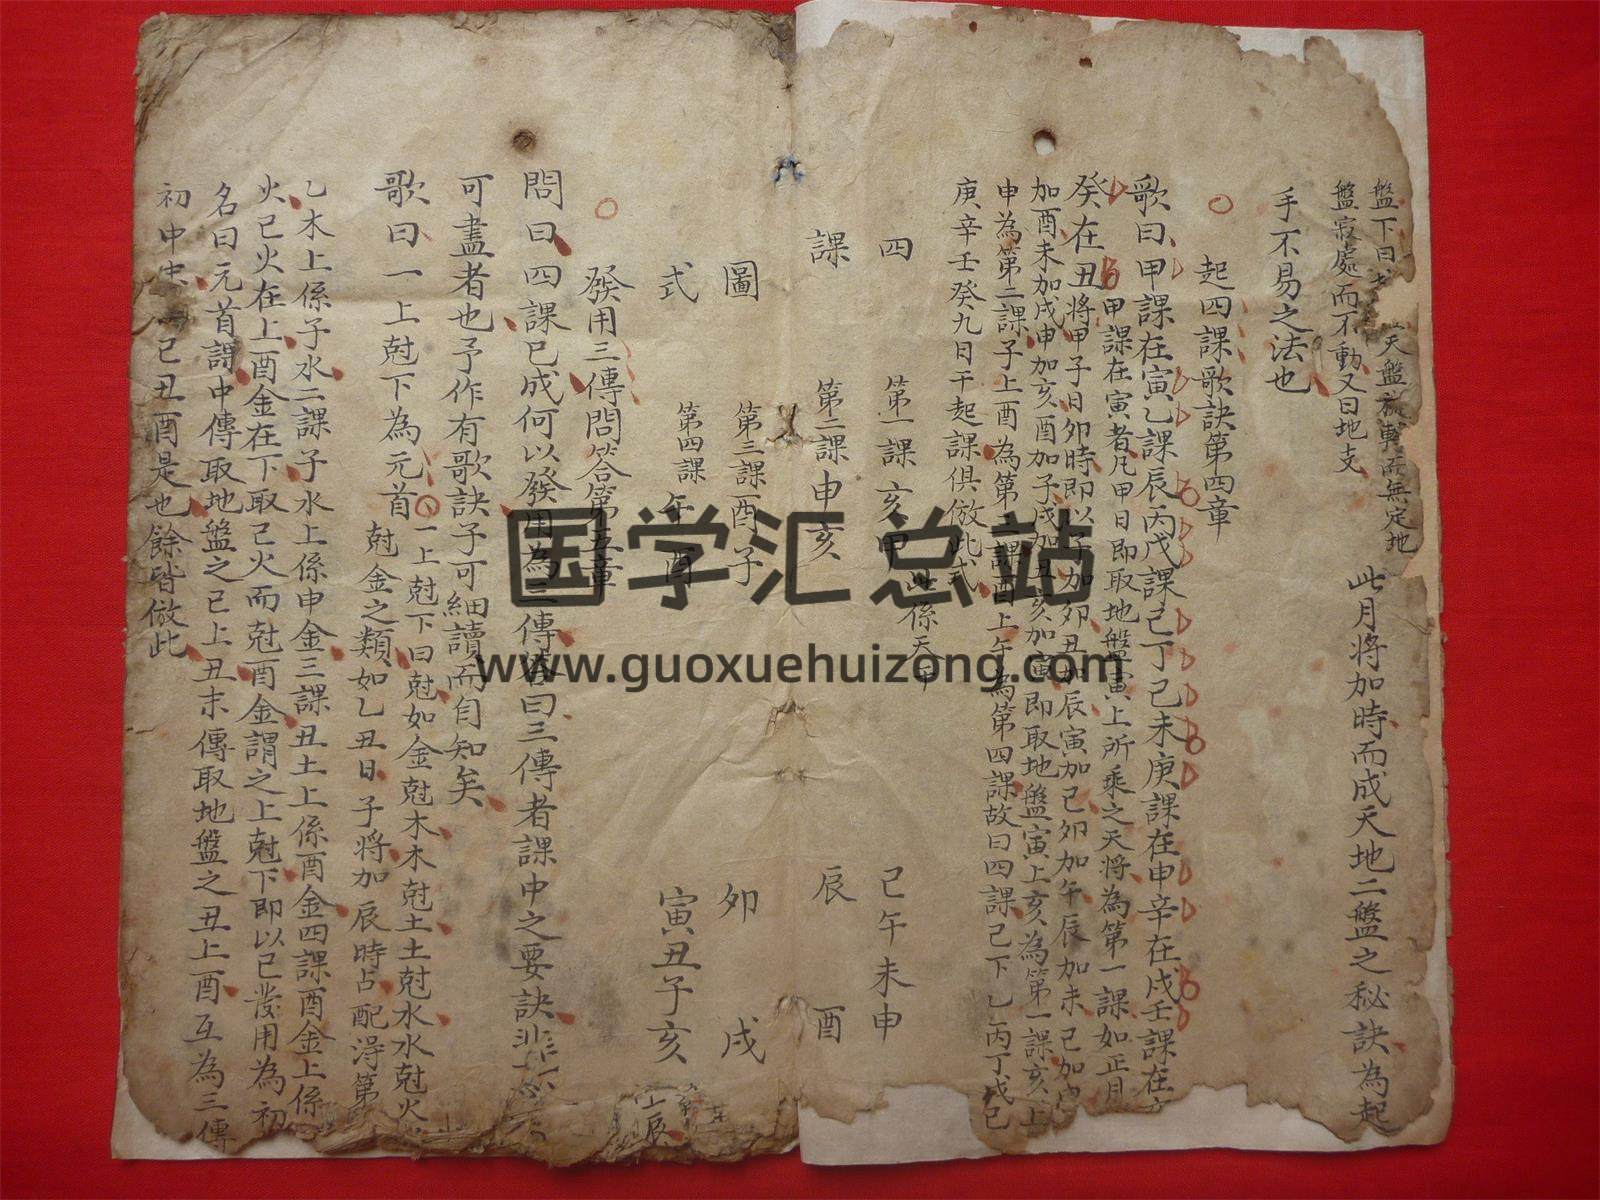 盤下曰
天盤旋轉而無定地
盤寂處而不動又曰地支
此月將加時而成天地二盤之秘訣為起
手不易之法也
起四課歌訣第四章
歌曰甲課在寅乙課辰丙戊課己丁己未庚課在申辛在戌壬課在
癸在丑
甲課在寅者凡甲日即取地盤寅上所乘之天將為第一課如正月
將甲子日卯時即以子加卯丑加辰寅加己卯加午辰加未己加
加酉未加戌申加亥酉加子戌加丑亥加寅即取地盤寅上亥為第一課亥上
申為第二課子上酉為第三課酉上午為第四課故曰四課己下乙丙丁戊己
庚辛壬癸九日干起課俱倣此式
四 第一課亥甲 此係天 己午未申
課 第二課申亥 辰 酉
圖 第三課酉子 卯 戌
式 第四課午酉 寅丑子亥
發用三傳問答第五章
問曰四課巳成何以發用為三傳答曰三傳者課中之要訣非
可盡者也予作有歌訣子可細讀而自知矣
歌曰一上尅下為元首
一上尅下曰尅如金尅木木尅土土尅水水尅火
尅金之類如乙丑日子將加辰時占配淂第
乙木上係子水二課子水上係申金三課丑土上係酉金四課酉金上係
火己火在上酉金在下取己火而尅酉金謂之上尅下即以己發用為初
名曰元首謂中傳取地盤之己上丑末傳取地盤之丑上酉互為三傳
初中末
己丑酉是也餘皆倣此
国学汇总站
www.guoxuehuizong.com